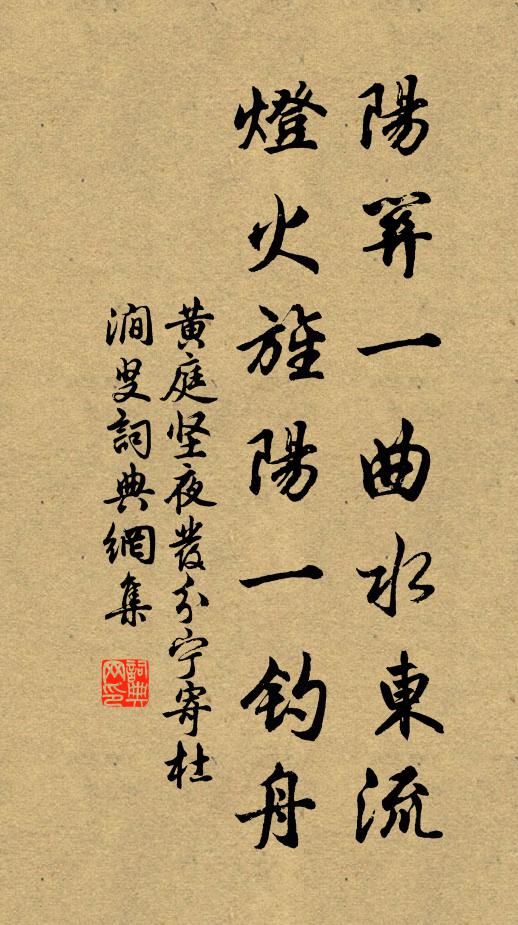 陽關一曲水東流
燈火旌陽一釣舟
黃庭坚夜發分宁寄杜
澗叟詞典網集
詞典
网印